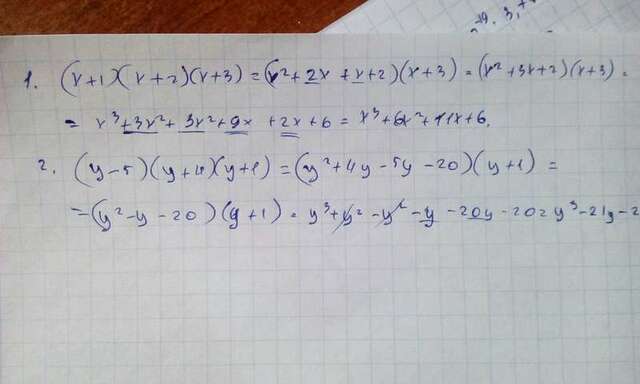 19. 3,
1. (x+1)(x+2)(x+3) = (x²+2x+x+2)(x+3) = (x²+3x+2)(x+3) =
= x³+3x²+3x²+9x+2x+6 = x³+6x²+11x+6.
2. (y-5)(y+4)(y+1) = (y²+4y-5y-20)(y+1) =
= (y²-y-20)(y+1) = y³+y²-y²-y-20y-20= y³-21y-2